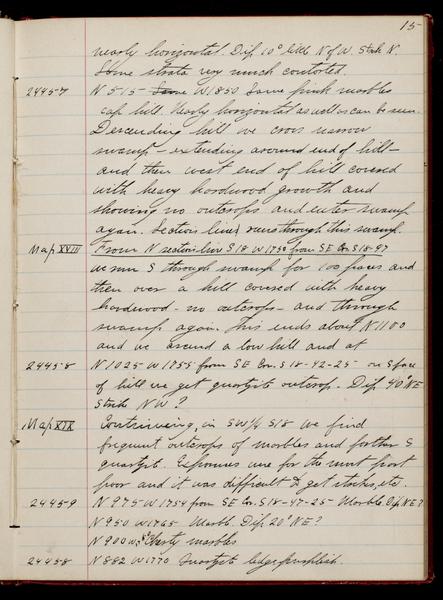 15
nearly horizontal. Dip 10° little N of W. Strike N.
Some strata very much contorted.
24457 N 515 Some W 1850 Some pink marbles
cap hill. Nearly horizontal as well as can be seen.
Descending hill we cross narrow
swamp - extending around end of hill -
and then west end of hill covered
with heavy hardwood growth and
showing no outcrops and enter swamp
again. Section line runs through this swamp.
Map XVIII From N section line S 18 W 1750 from SE Cor. S 18-
we run S through swamp for 100 paces and
then over a hill covered with heavy
hardwood - no outcrops - and through
swamp again. This ends about N 1100
and we ascend a low hill and at
24458 N 1025 W 1755 from SE Cor. S 18-42-25 on S face
of hill we get quartzite outcrop. Dip 40° NE
Strike NW?
Map XIX Continuing, in SW/4 S18 we find
frequent outcrops of marbles and farther S
quartzite. Exposures were for the most part
poor and it was difficult to get strikes, etc.
24459 N 975 W 1754 from SE Cor. S 18-47-25 Marble. Dip NE?
N 950 W 1765 Marble Dip 20° NE?
N 900 W Cherty marbles
24458 N 882 W 1770 Quartzite ledge